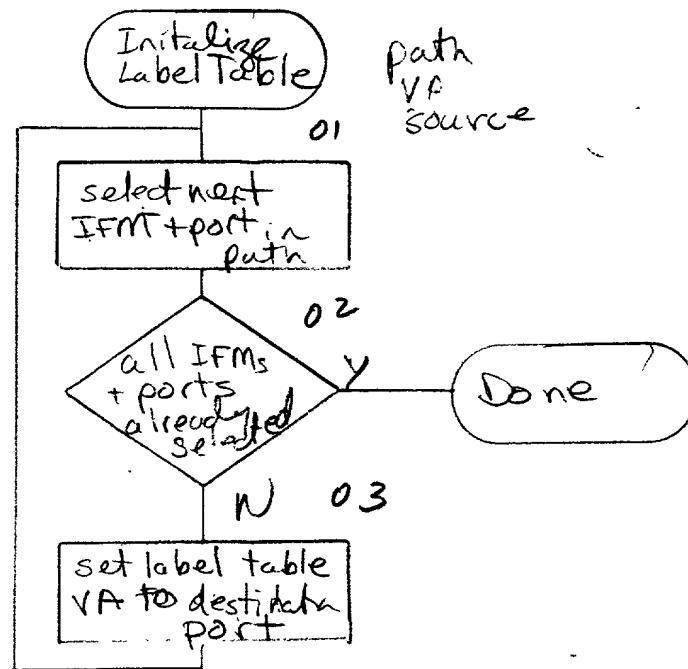 Initalize
Label Table
path
VA
source
01
select next
IFM + port in
path
02
all IFMs
+ ports
already
selected
Y
Done
N
03
set label table
VA to
port